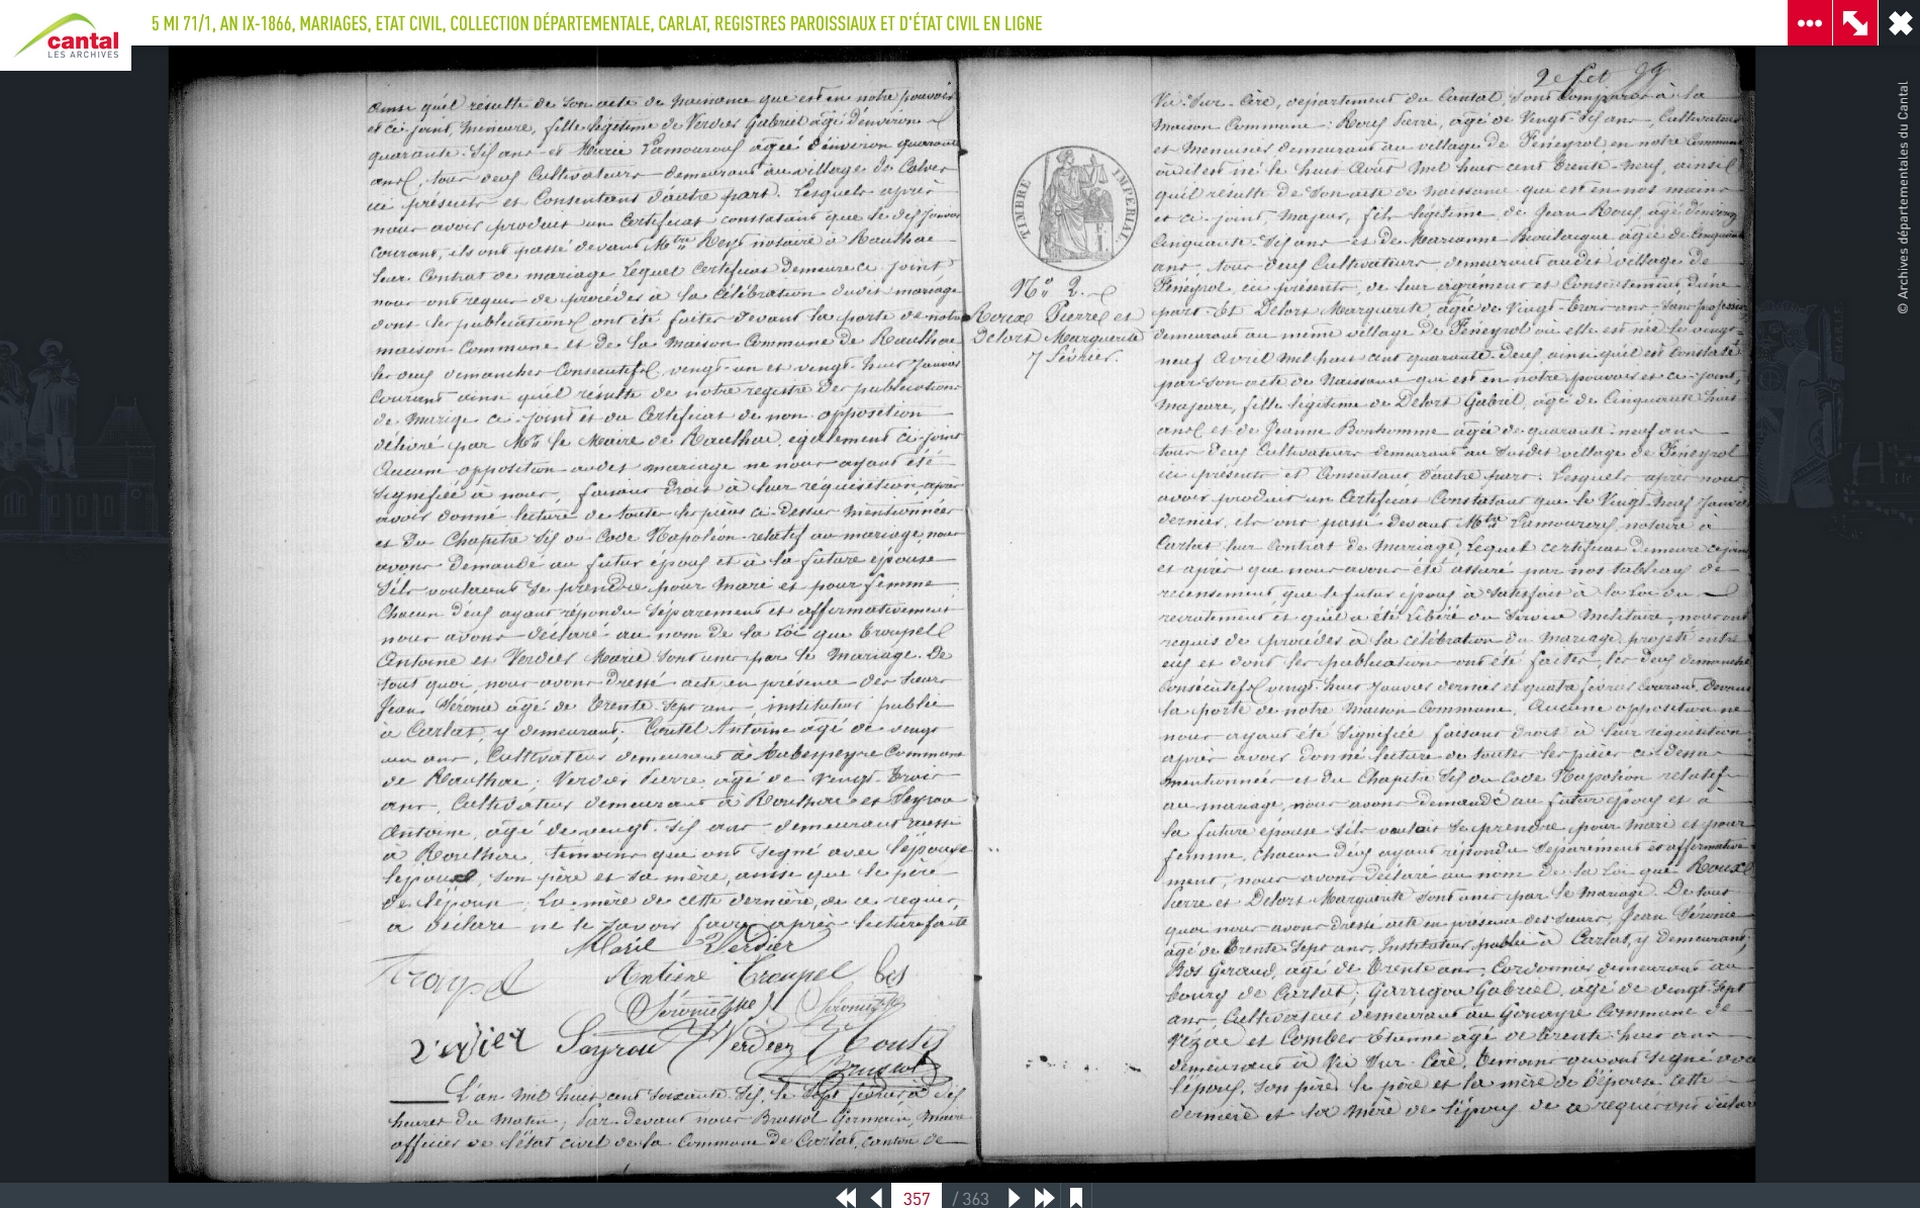 cantal
LES ARCHIVES
5 MI 71/1, AN IX-1866, MARIAGES, ETAT CIVIL, COLLECTION DÉPARTEMENTALE, CARLAT, REGISTRES PAROISSIAUX ET D'ÉTAT CIVIL EN LIGNE
ainsi qu'il résulte de son acte de naissance que est en notre pouvoir
et ci joint, mineure, fille légitime de Verdier Gabriel agé d'environ
quarante six ans et Marie Lamouroux agée d'environ quarante
ans, tous deux cultivateurs demeurant au village de
ici présents et consentant d'autre part. Lesquels après
nous avoir produit un certificat constatant que le dix janvier
courant, ils ont passé devant Mtre Rey notaire à Raulhac
leur contrat de mariage lequel certificat demeure ci-joint
nous ont requis de procéder à la célébration dudit mariage
dont les publications ont été faites devant la porte de notre
maison commune et de la maison commune de Raulhac
les deux dimanches consécutifs vingt-un et vingt-huit janvier
courant ainsi qu'il résulte de notre registre des publications
de mariage ci-joint et du certificat de non opposition
délivré par Mr le Maire de Raulhac, également ci-joint
Aucune opposition audit mariage ne nous ayant été
signifiée à nous, faisant droit à leur réquisition, après
avoir donné lecture de toutes les pièces ci-dessus mentionnées
et du chapitre six du Code Napoléon relatif au mariage, nous
avons demandé au futur époux et à la future épouse
s'ils voulaient se prendre pour mari et pour femme
chacun d'eux ayant répondu séparément et affirmativement
nous avons déclaré au nom de la loi que Troupel
Antoine et Verdier Marie sont unis par le mariage. De
tout quoi nous avons dressé acte en présence des sieurs
Jean Séronie agé de trente sept ans, instituteur public
à Carlat, y demeurant; Coutel Antoine agé de vingt
un ans, cultivateur demeurant à Aubespeyre commune
de Raulhac; Verdier Pierre agé de vingt-trois
ans, cultivateur demeurant à Raulhac et Seyrou
Antoine, agé de vingt-six ans demeurant aussi
à Raulhac, témoins que ont signé avec l'épouse
l'époux, son père et sa mère, ainsi que le père
de l'épouse; La mère de cette dernière, de ce requise,
a déclaré ne le savoir faire après lecture faite
Marie Verdier
Troupel Antoine Troupel
Séronie
verdier Seyrou Verdier
Brussol
L'an mil huit cent soixante six, le sept février à dix
heures du matin; Par devant nous Brussol Germain, Maire
officier de l'état civil de la commune de Carlat, canton de
TIMBRE IMPERIAL
No 2.
Roux Pierre et
Delort Marguerite
7 février.
2e fet 99.
Vic-sur-Cère, département du Cantal, sont comparus à la
maison commune: Roux Pierre, agé de vingt-six ans, cultivateur
et menuisier demeurant au village de Féneyrol en notre commune
où il est né le huit mil huit cent trente-neuf, ainsi
qu'il résulte de son acte de naissance qui est en nos mains
et ci-joint, majeur, fils légitime de Jean Roux, agé d'environ
cinquante-six ans et de Marianne agée de cinquante
ans, tous deux cultivateurs, demeurant audit village de
Féneyrol, ici présents, de leur agrément et consentement, d'une
part. Et Delort Marguerite, agée de vingt-trois ans, sans profession
demeurant au même village de Féneyrol où elle est née le vingt-
neuf avril mil huit cent quarante-deux, ainsi qu'il est constaté
par son acte de naissance qui est en notre pouvoir et ci-joint,
majeure, fille légitime de Delort Gabriel, agé de cinquante huit
ans et de Jeanne Bonhomme agée de quarante-neuf ans
tous deux cultivateurs demeurant au susdit village de Féneyrol
ici présents et consentant d'autre part. Lesquels après nous
avoir produit un certificat constatant que le vingt-neuf janvier
dernier, ils ont passé devant Mtre Lamouroux, notaire à
Carlat leur contrat de mariage, lequel certificat demeure ci-joint
et après que nous avons été assuré par nos tableaux de
recensement que le futur époux a satisfait à la loi du
recrutement et qu'il a été libéré du service militaire, nous ont
requis de procéder à la célébration du mariage projeté entre
eux et dont les publications ont été faites, les deux dimanches
consécutifs vingt-huit janvier dernier et quatre février courant, devant
la porte de notre maison commune. Aucune opposition ne
nous ayant été signifiée faisant droit à leur réquisition
après avoir donné lecture de toutes les pièces ci-dessus
mentionnées et du chapitre six du Code Napoléon relatif
au mariage, nous avons demandé au futur époux et à
la future épouse s'ils voulait se prendre pour mari et pour
femme, chacun d'eux ayant répondu séparément et affirmative-
ment, nous avons déclaré au nom de la loi que Roux
Pierre et Delort Marguerite sont unis par le mariage. De tout
quoi nous avons dressé acte en présence des sieurs, Jean Séronie
agé de trente-sept ans, instituteur public à Carlat, y demeurant;
Bos Geraud, agé de trente ans, cordonnier demeurant au
bourg de Carlat; Garrigou Gabriel, agé de vingt-sept
ans, cultivateur demeurant au commune de
Vézac et Combes Etienne agé de trente-huit ans
demeurant à Vic-sur-Cère, témoins que ont signé avec
l'époux, son père, le père et la mère de l'épouse cette
dernière et la mère de l'époux de ce requérant déclaré
© Archives départementales du Cantal
357 / 363